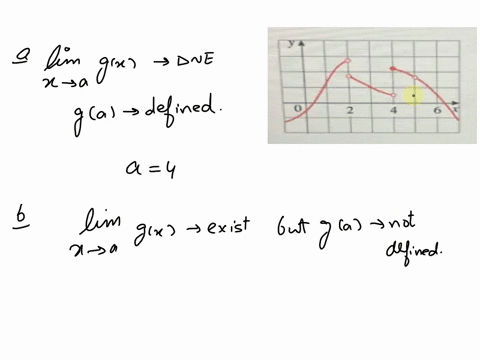 a lim g(x) → DNE
x→a
g(a) → defined.
a = 4
y
0 2 4 6 x
b lim g(x) → exist but g(a) → not
x→a defined.